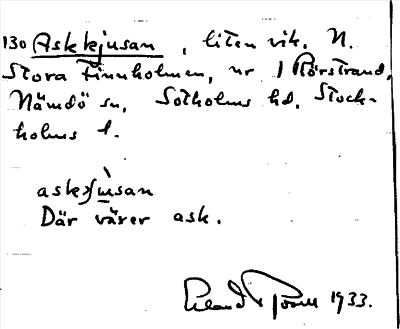 130 Askkjusan, liten vik. N.
Stora Finnholmen, nr 1 Rörstrand,
Nämdö sn, Sotholms hd, Stock-
holms l.
Där växer ask.
1933.